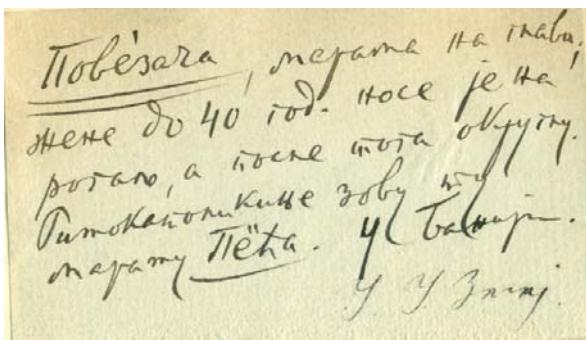 Повéзача, марама на глави;
жене до 40 год. носе је на
рогаљ, а после тога округлу.
Римокатоликиње зову ту
мараму Пёћа. У Банији.
У. У